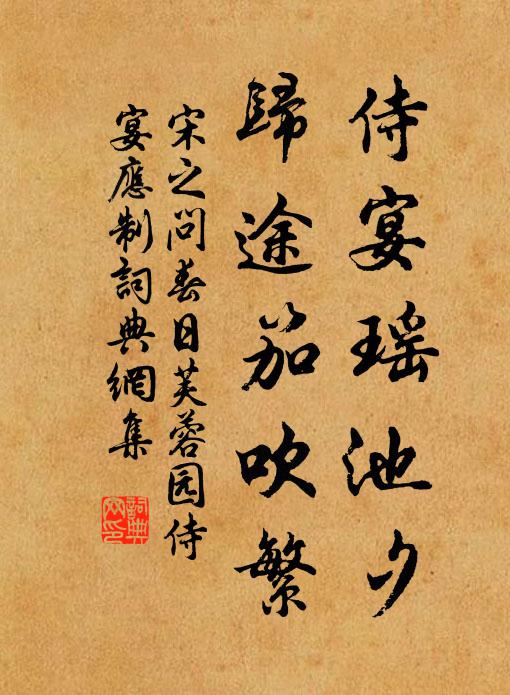 侍宴瑶池夕
歸途笳吹繁
宋之问春日芙蓉园侍
宴應制詞典網集
詞典網印